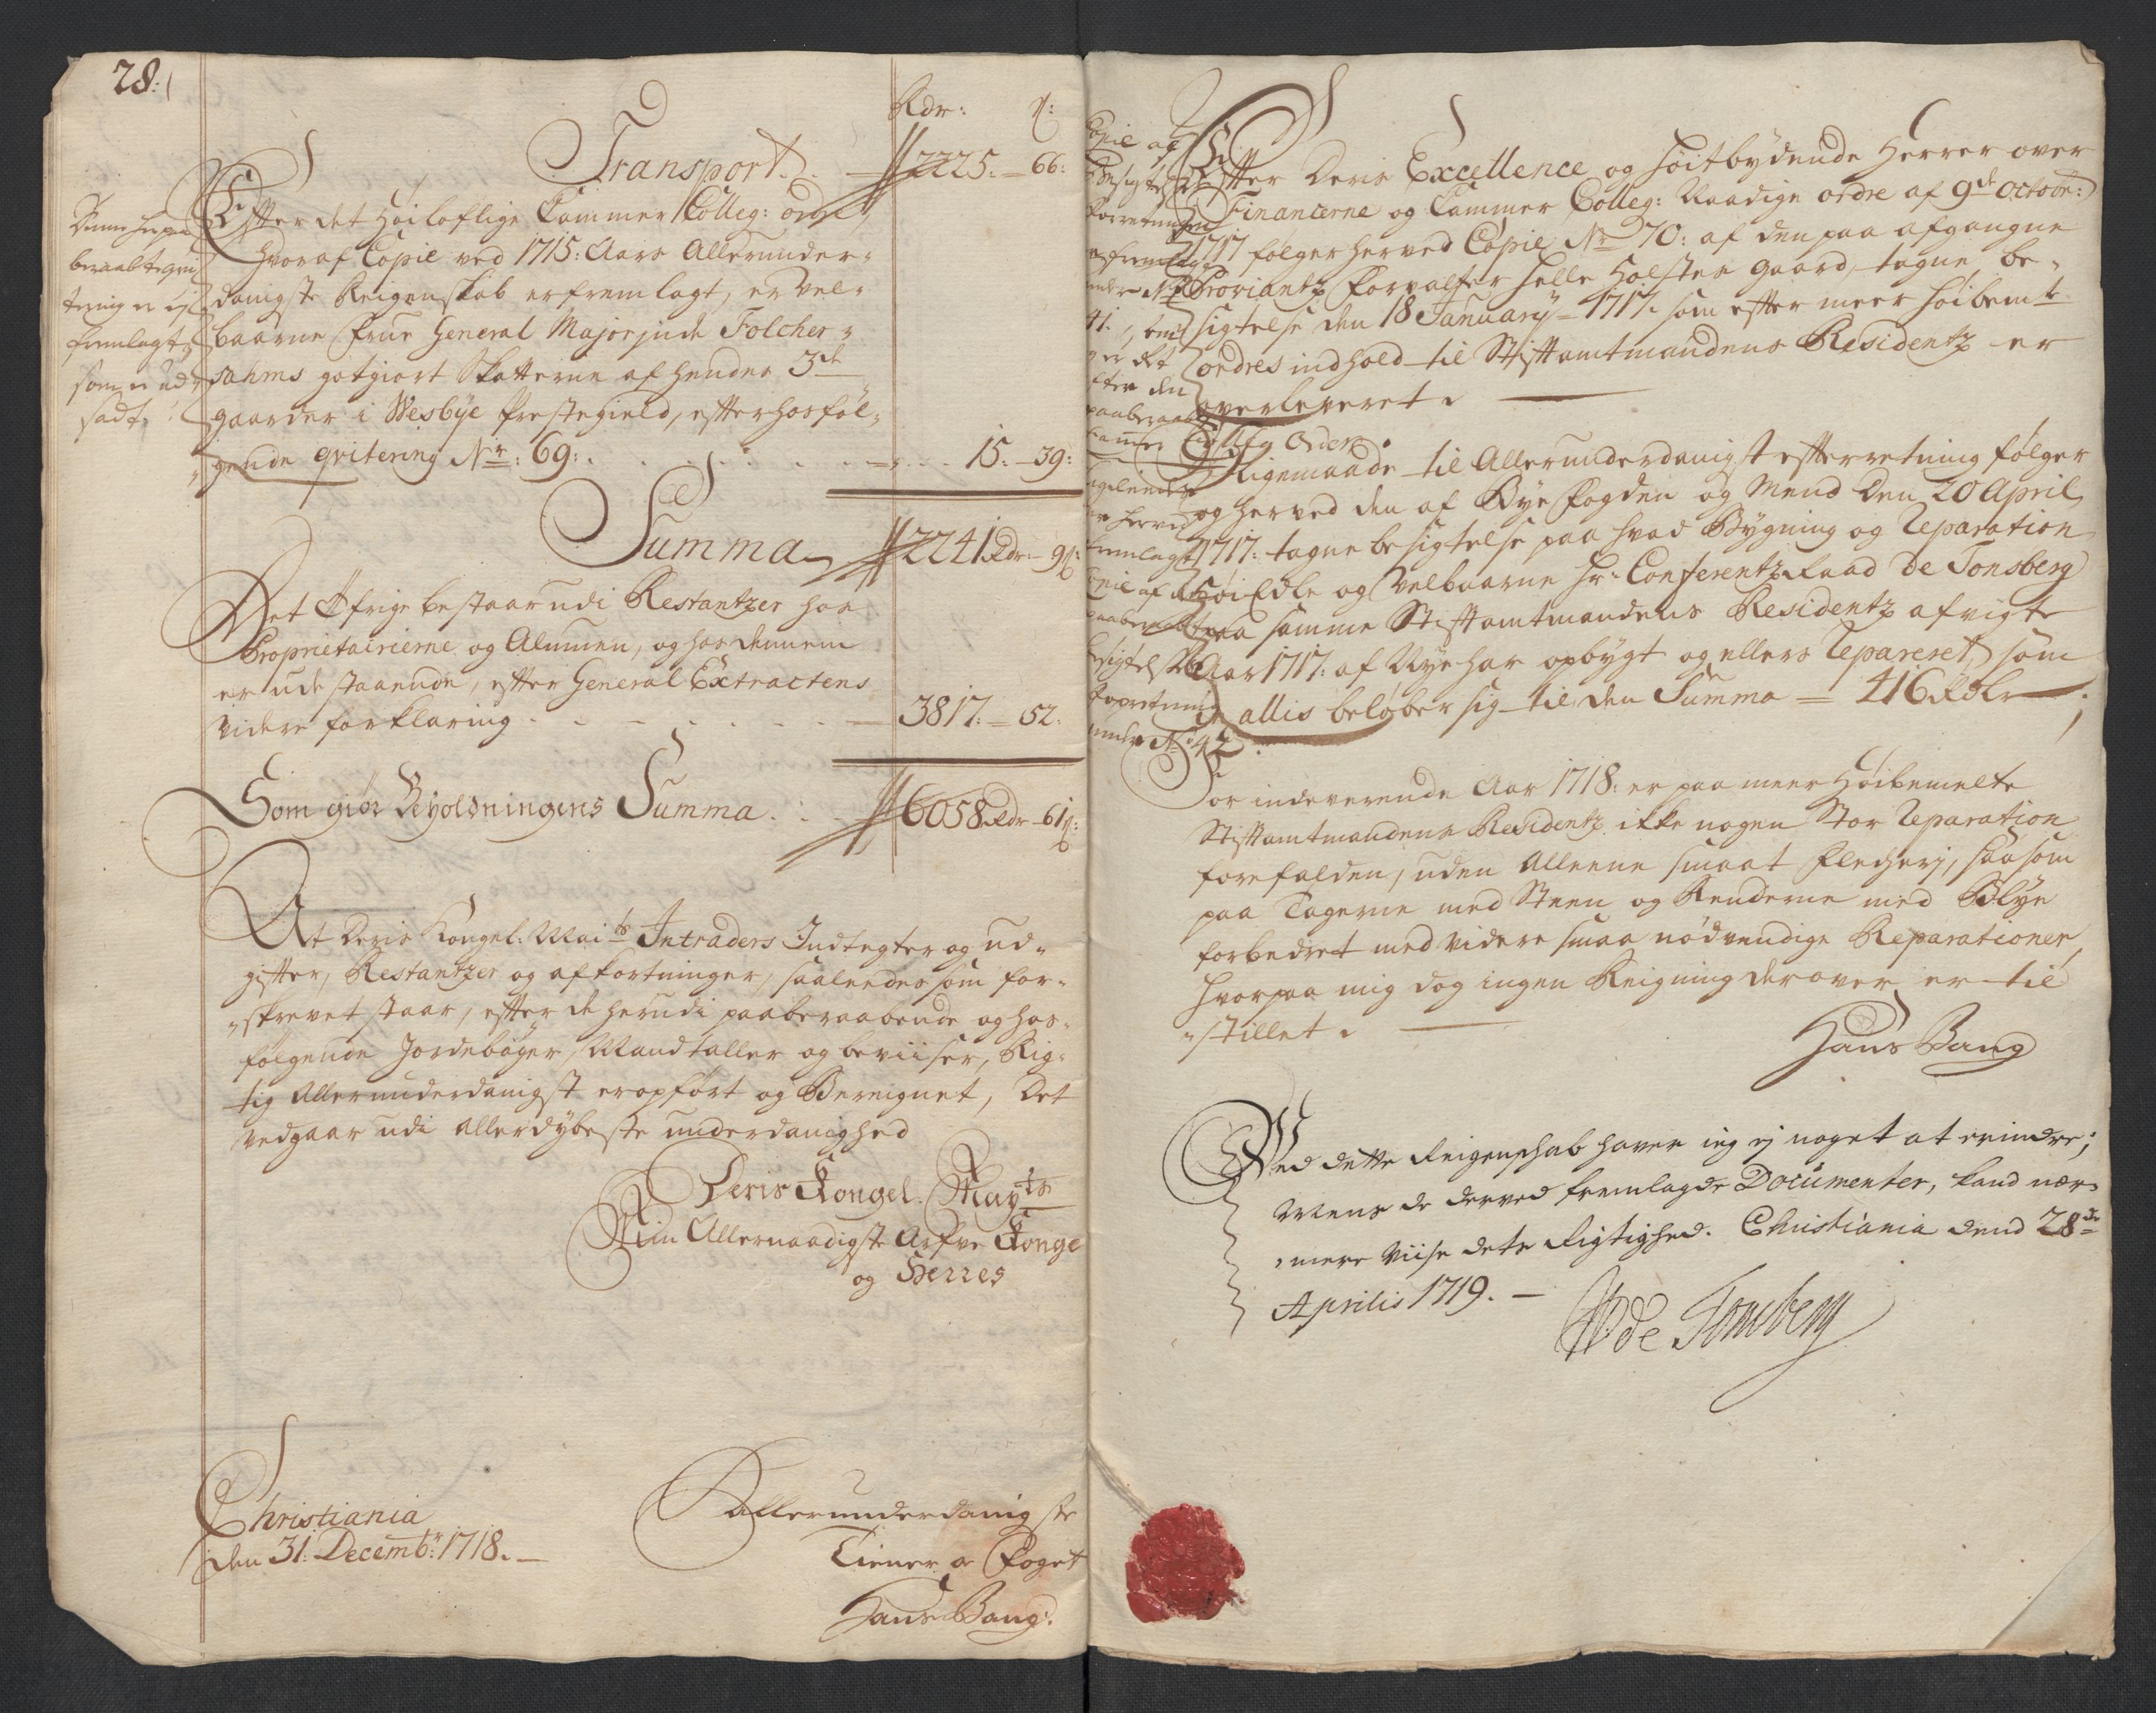 28:
Rdr: ß:
Transport. — 2225. — 66:
Efter det Høiloflige Cammer Colleg: ordre,
hvoraf Copie ved 1715: Aars Allerunder-
danigste Reigenskab er fremlagt, er Vel-
baarne Frue General Majorinde Folcher-
sahms godgiort Skatterne af hendes 3de
gaarder i Wesbye Prestegield, efter hosføl-
gende qvitering No: 69: . . . 15. — 39:
Denne her paa
beraabte qvi
tering er ej
fremlagt,
som er ud
sadt.
Summa 2241 Rdr — 9 ß:
Det Øfrige bestaar udi Restantzer hos
Proprietairierne og Almuen, og hos dennem
er udestaaende, efter General Extractens
videre forklaring . . . 3817: — 52:
Som giør Beholdningens Summa . : 6058 Rdr — 61 ß:
At Deris Kongel: Maits Intraders Indtegter og ud-
gifter, Restantzer og afkortninger, saaledes som for-
skrevet staar, efter de herudi paaberaabende og hos-
følgende Jordebøger, Mandtaller og beviiser, Rig-
tig Allerunderdanigst er opført og Bereignet, Det
vedgaar udi allerdybeste underdanighed
Deris Kongel. Mayts
Min Allernaadigste Arfve Konge
og Herres
Christiania
den 31: Decembr: 1718. —
allerunderdanigste
Tiener og Foget
Hans Bang.
Copie af
Besigtelses
Forretningen
er fremlagt
under No
41.
er det
efter den
paaberaabte
Cammer Collg Ordre
ligeledes
er herved
fremlagt
Copie af den
paaberaabte
Besigtelses
Forretning
under No 42
Efter Deris Excellence og Høitbydende Herrer over
Financerne og Cammer Colleg: Naadige ordre af 9de Octobr:
1717 følger herved Copie No 70: af den paa afgangne
Proviantz Forvalter Helle Holsten gaard, tagne be-
sigtelse den 18 January 1717. som efter meer høibemte
ordres indhold til Stiftamtmandens Residentz er
overleveret.
Ligemaade til Allerunderdanigst efterretning følger
og herved den af Bye Fogden og Mend den 20 April
1717: tagne besigtelse paa hvad Bygning og Reparation
HøiEdle og Velbaarne Hr: Conferentz Raad De Tonsberg
paa samme Stiftamtmandens Residentz afvigte
Aar 1717: af Nye har opbygt og ellers Repareret, som
in allis beløber sig til den Summa = 416 Rdlr — ;
For indeverende Aar 1718: er paa meer Høibemelte
Stiftamtmandens Residentz ikke nogen Stor Reparation
forefalden, uden Alleene smaat Flecherj, saasom
paa Tagerne med Steen og Renderne med Blye
forbedret med videre smaa nødvendige Reparationer,
hvorpaa mig dog ingen Reigning derover er til
stillet.
Hans Bang
Ved dette Reigenschab haver ieg ej noget at erindre;
Mens de derved fremlagde Documenter, kand nær-
mere Viise dets Rigtighed. Christiania dend 28de
Aprilis 1719. —
W de Tonsberg